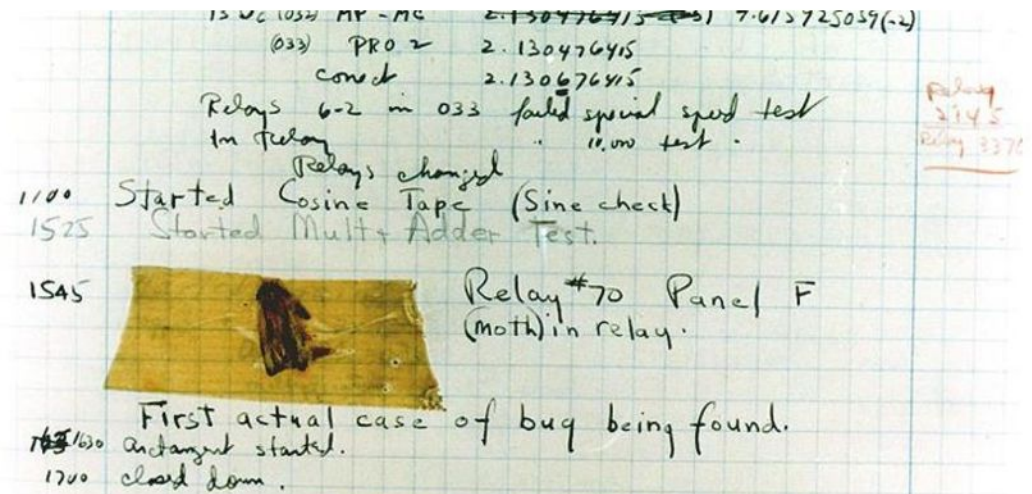 13 UC (032) MP - MC 2.130476415 4.615925059(-2)
(033) PRO 2 2.130476415
conect 2.130676415
Relays 6-2 in 033 failed special speed test
In Relay " 10,000 test .
Relays changed
Relay
2145
Relay 3370
1100 Started Cosine Tape (Sine check)
1525 Started Mult + Adder Test.
1545 Relay #70 Panel F
(moth) in relay.
First actual case of bug being found.
1630 arctangent started.
1700 closed down.